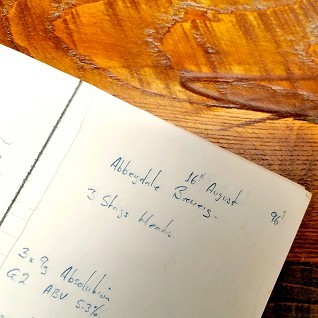 16th August 96
Abbeydale Brewery.
3 Stags Heads.
3 x 9g Absolution
G2 ABV 5.3%